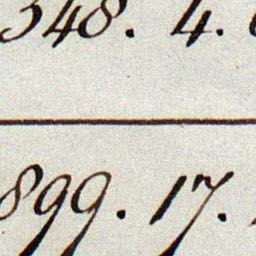 548. 4.
899. 17.